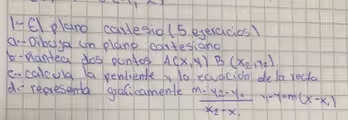 1-El plano cartesio (5 ejercicios)
a.-Dibuja un plano cartesiano
b-Plantea dos puntos A(x,y) B(x₂,y₂)
c-calcula la peniente y la ecuación de la recta
d.-representa gráficamente m=y₂-y₁ y-y₁=m(x-x₁)
x₂-x₁